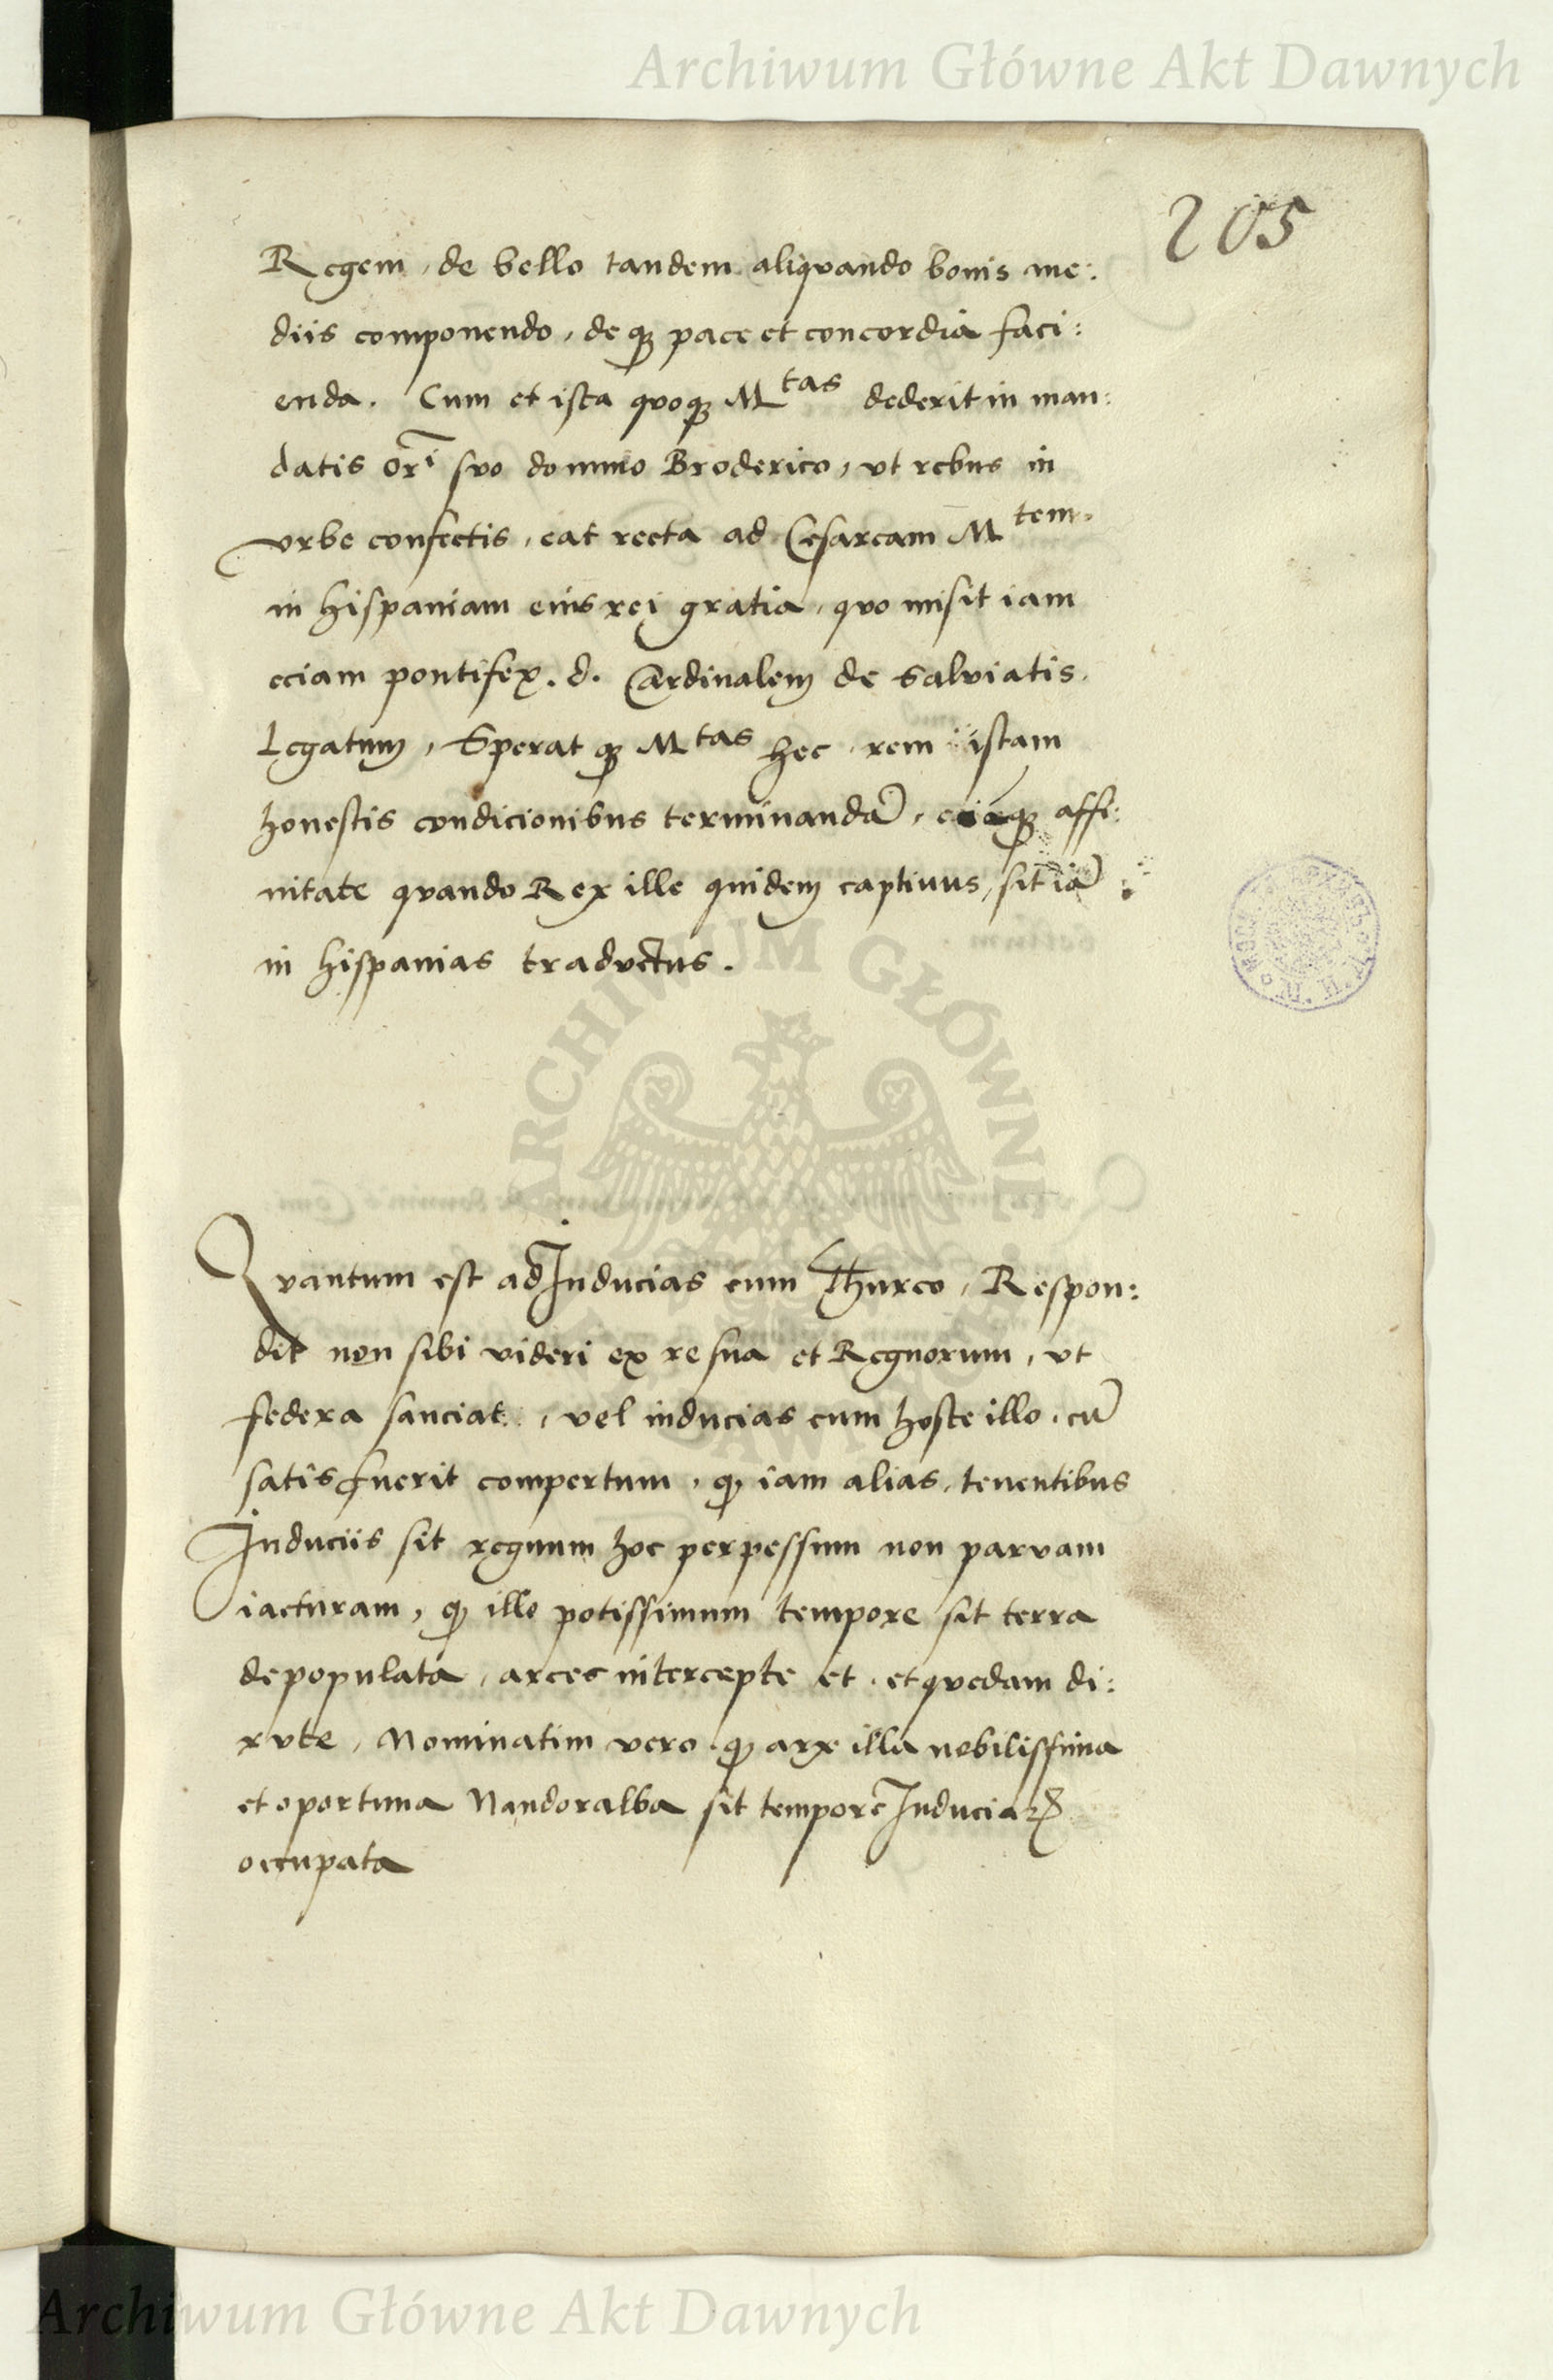 Archiwum Główne Akt Dawnych
205
Regem, de bello tandem aliquando bonis me:
diis componendo, deqȝ pace et concordia faci:
enda. Cum et ista quoqȝ Mtas dederit in man:
datis orī suo domino Broderico, vt rebus in
vrbe confectis, eat recta ad Cesaream Mtem.
in hispaniam eius rei gratia, quo misit iam
eciam pontifex. d. Cardinalem de Salviatis.
Legatum, Speratqȝ Mtas hec rem istam
honestis condicionibus terminandā, affi:
nitate quando Rex ille quidem captiuus, sit iā
in hispanias traductus.
Quantum est ad Inducias cum Thurco, Respon:
dit non sibi videri ex re sua et Regnorum, vt
federa sanciat, vel inducias cum hoste illo, cū
satis fuerit compertum, qȝ iam alias, tenentibus
Induciis sit regnum hoc perpessum non parvam
iacturam, qȝ illo potissimum tempore sit terra
depopulata, arces intercepte et, et quedam di:
rute, Nominatim vero qȝ arx illa nobilissima
et oportuna Nandoralba sit tempore Induciaꝝ
occupata
ARCHIWUM GŁÓWNE
Archiwum Główne Akt Dawnych